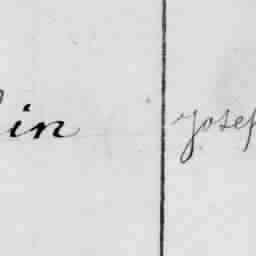 in Josef